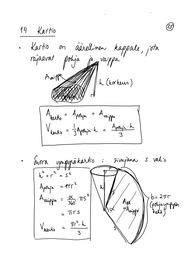 14 Kartio
• Kartio on äärellinen kappale, jota
rajaavat pohja ja vaippa.
A vaippa
h (korkeus)
A pohja
A kartio = A pohja + A vaippa
V kartio = 1/3 A pohja · h = A pohja · h / 3
• Suora ympyräkartio : sivujana s vakio
h² + r² = s²
A pohja = πr²
A vaippa = α/360 · πs²
= πrs
V kartio = πr² · h / 3
r
h
s
α
b = 2πr